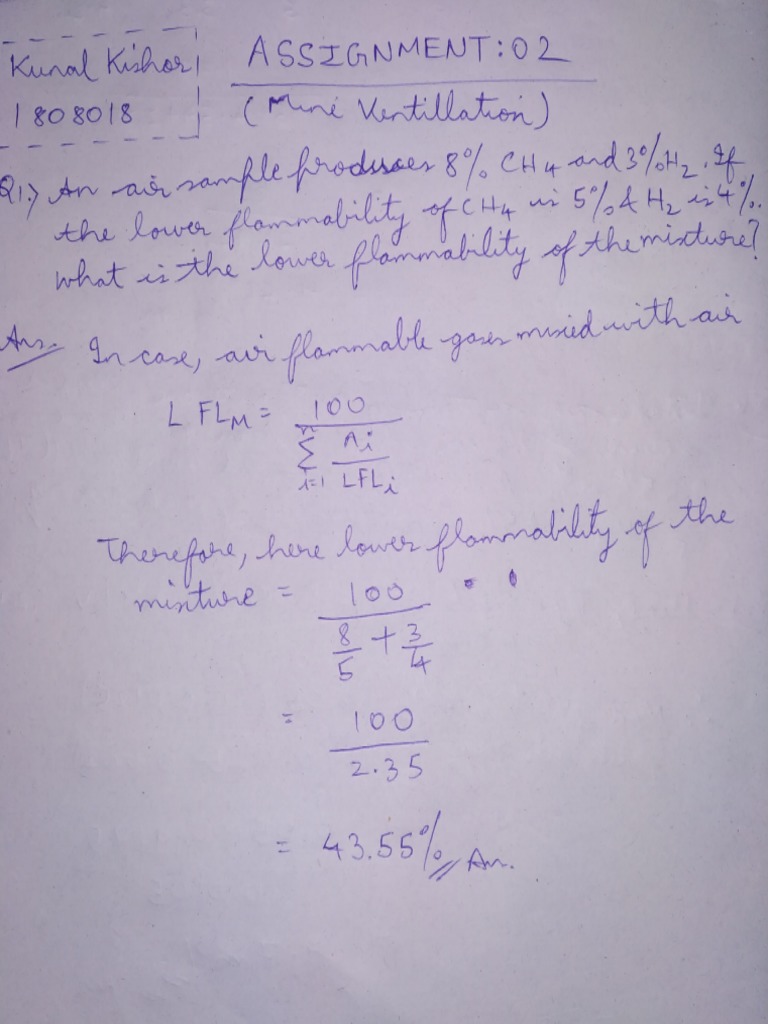 Kunal Kishor
1808018
ASSIGNMENT:02
(Mine Ventillation)
Q1.) An air sample produces 8% CH4 and 3% H2. If
the lower flammability of CH4 is 5% & H2 is 4%.
what is the lower flammability of the mixture?
Ans. In case, air flammable gases mixed with air
LFLM = 100 / Σ(i=1 to n) Ai/LFLi
Therefore, here lower flammability of the
mixture = 100 / (8/5 + 3/4)
= 100 / 2.35
= 43.55% Ans.